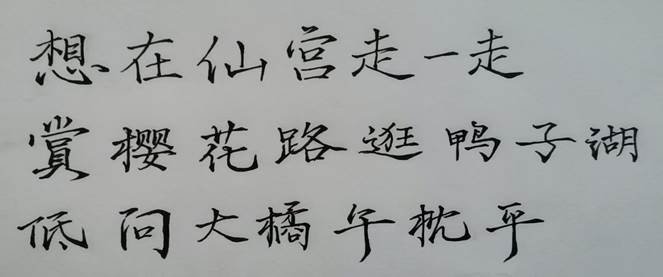 想在仙宫走一走
赏樱花路逛鸭子湖
低问大橘午枕平